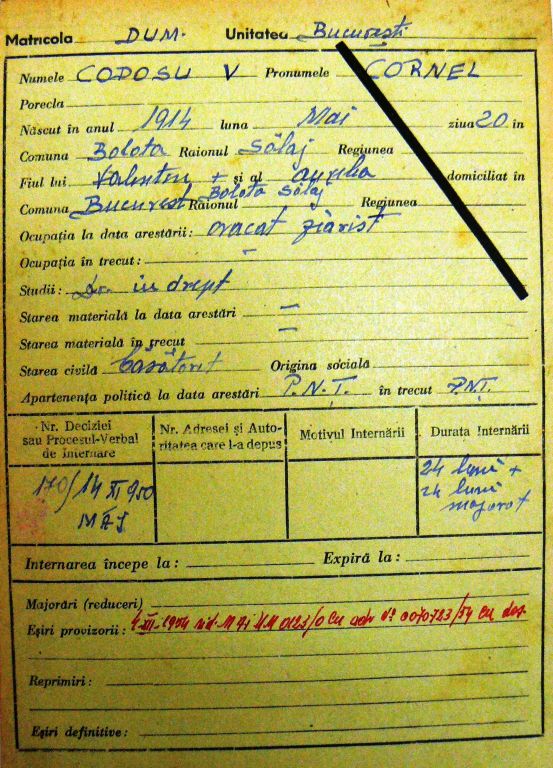 Matricola DUM. Unitatea București
Numele COPOSU V Pronumele CORNEL
Porecla
Născut în anul 1914 luna Mai ziua 20 în
Comuna Bolota Raionul Sălaj Regiunea
Fiul lui Valentin + și al Aurelia domiciliat în
Bolota Sălaj
Comuna București Raionul Regiunea
Ocupația la data arestării: avocat ziarist
Ocupația în trecut: —
Studii: Dr. in drept
Starea materială la data arestări —
Starea materială în trecut —
Starea civilă Căsătorit Origina socială
Apartenența politică la data arestări P.N.Ț. în trecut P.N.Ț.
Nr. Deciziei sau Procesul-Verbal de Internare
Nr. Adresei și Autoritatea care l-a depus
Motivul Internării
Durata Internării
170/14 XI 950
M A I
24 luni +
24 luni
majorat
Internarea începe la: Expiră la:
Majorări (reduceri)
Eșiri provizorii: XII-1954 M A I 0123/0 cu adr
Reprimiri:
Eșiri definitive: